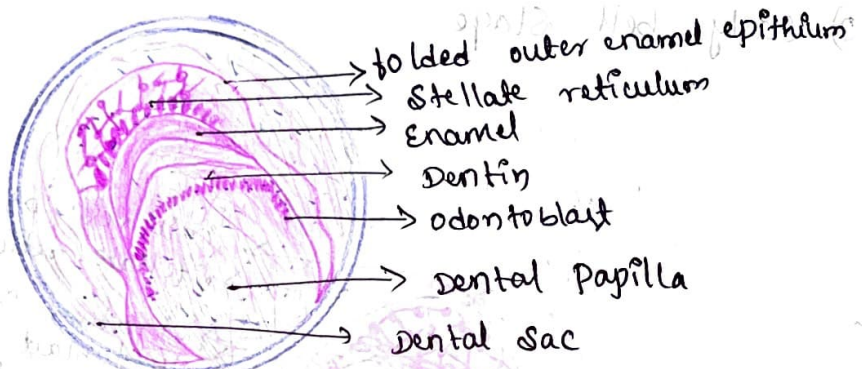 folded outer enamel epithilum
Stellate reticulum
Enamel
Dentin
odontoblast
Dental Papilla
Dental Sac